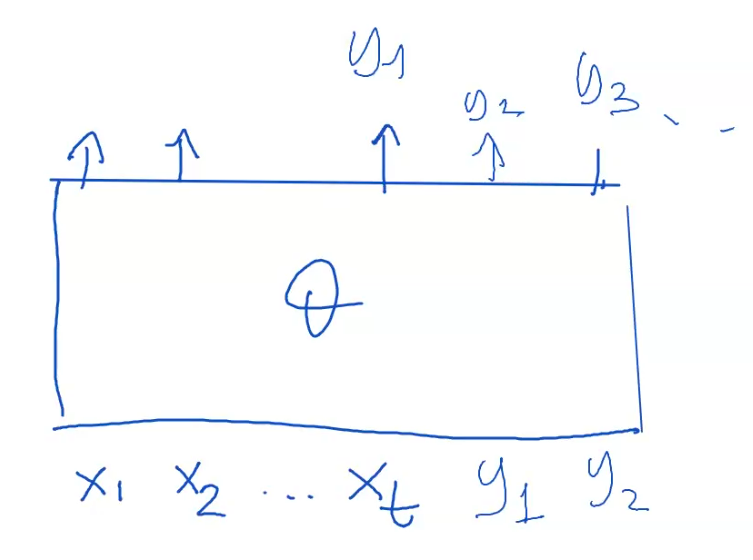 y1 y2 y3 . .
θ
x1 x2 ... xt y1 y2